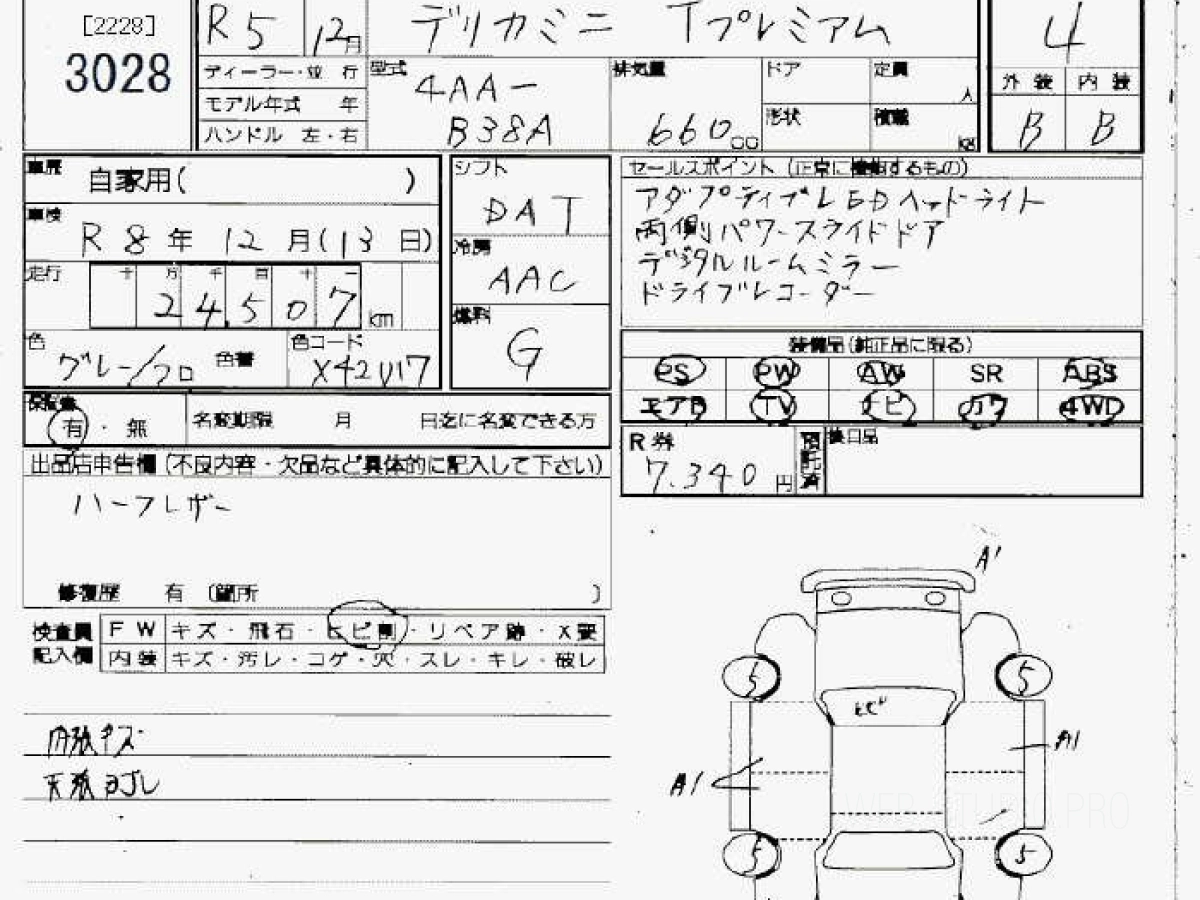 [2228]
3028
R5 12月 デリカミニ Tプレミアム 4
ディーラー・並 行
モデル年式 年
ハンドル 左・右
型式 4AA-
B38A
排気量 660cc
ドア 定員 人
形状 積載 kg
外装 内装
B B
車歴 自家用( )
車検 R8年 12月(13日)
走行 十 万 千 百 十 一
24,507 km
色 グレー/クロ 色替
色コード X42U17
シフト DAT
冷房 AAC
燃料 G
セールスポイント (正常に機能するもの)
アダプティブLEDヘッドライト
両側パワースライドドア
デジタルルームミラー
ドライブレコーダー
装備品(純正品に限る)
PS PW AW SR ABS
エアB TV ナビ カワ 4WD
保証書 有・無
名変期限 月 日迄に名変できる方
R券 7.340円 預託済
後日品
出品店申告欄 (不良内容・欠品など具体的に記入して下さい)
ハーフレザー
修復歴 有 (箇所 )
検査員記入欄
FW キズ・飛石・ヒビ割・リペア跡・X要
内装 キズ・汚レ・コゲ・穴・スレ・キレ・破レ
内張キズ
天張ヨゴレ
A1
5 5
ヒビ
A1
A1
5 5
WEB STUDIO.PRO